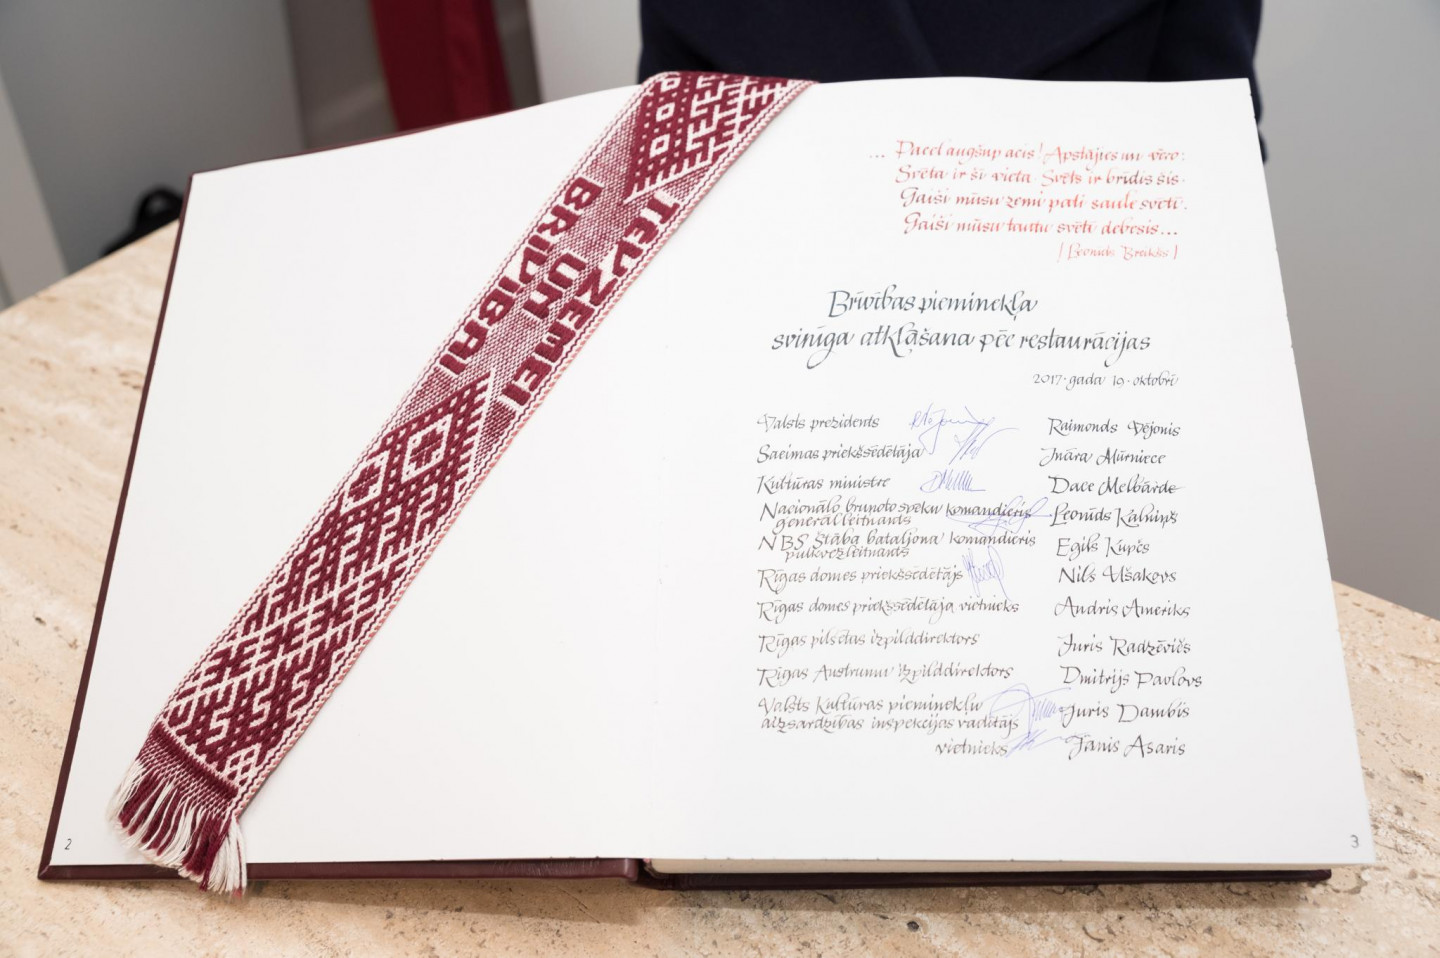 TĒVZEMEI
UN
BRĪVĪBAI
... Pacel augšup acis! Apstājies un vēro:
Svēta ir šī vieta. Svēts ir brīdis šis.
Gaiši mūsu zemi pati saule svētī.
Gaiši mūsu tautu svētī debesis...
/Leonīds Breikšs/
Brīvības pieminekļa
svinīga atklāšana pēc restaurācijas
2017. gada 19. oktobrī
Valsts prezidents Raimonds Vējonis
Saeimas priekšsēdētāja Ināra Mūrniece
Kultūras ministre Dace Melbārde
Nacionālo bruņoto spēku komandieris Leonīds Kalniņš
ģenerālleitnants
NBS Štāba bataljona komandieris Egils Kupčs
pulkvežleitnants
Rīgas domes priekšsēdētājs Nils Ušakovs
Rīgas domes priekšsēdētāja vietnieks Andris Ameriks
Rīgas pilsētas izpilddirektors Juris Radzēvičs
Rīgas Austrumu izpilddirektors Dmitrijs Pavlovs
Valsts Kultūras pieminekļu Juris Dambis
aizsardzības inspekcijas vadītājs
vietnieks Jānis Asaris
2
3